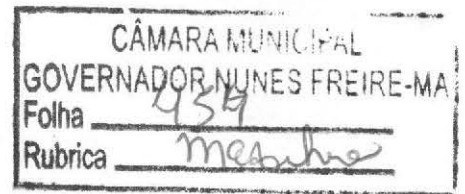 CÂMARA MUNICIPAL
GOVERNADOR NUNES FREIRE-MA
Folha 454
Rubrica